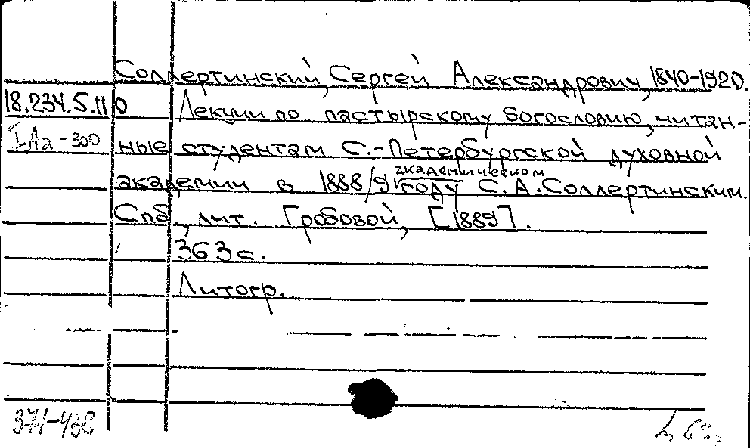 Соллертинский, Сергей Александрович, 1840-1920.
18.234.5.110 Лекции по пастырскому богословию, читан-
ные студентам С.-Петербургской духовной
академии в 1888/9 академическом году С.А.Соллертинским.
Спб, лит. Гробовой, [1889].
363 с.
Литогр.